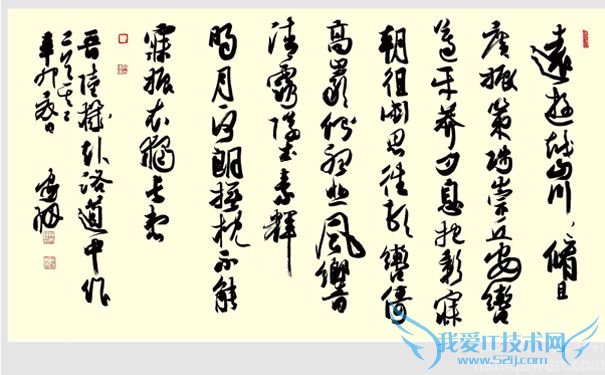 遠遊越山川〻脩且
廣振策陟崇丘安轡
遵平莽夕息抱影寐
朝徂銜思往頓轡倚
高巖側聽悲風響
清露墜素輝
明月一何朗撫枕不能
寐振衣獨長想
晉陸機赴洛道中作
二首之二
辛卯
我爱IT技术网
www.52ij.com